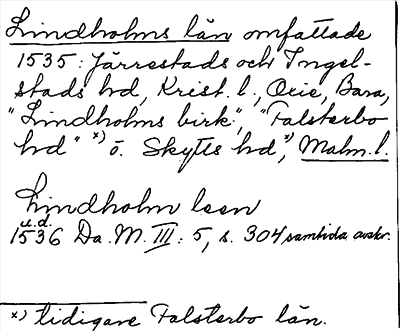 Lindholms län omfattade
1535: Järrestads och Ingel-
stads hd, Krist. l., Oxie, Bara,
"Lindholms birk", "Falsterbo
hd" x) o. Skytts hd x), Malm. l.
Lindholm leen
u.d.
1536 Da. M. III: 5, s. 304 samtida avskr.
x) tidigare Falsterbo län.